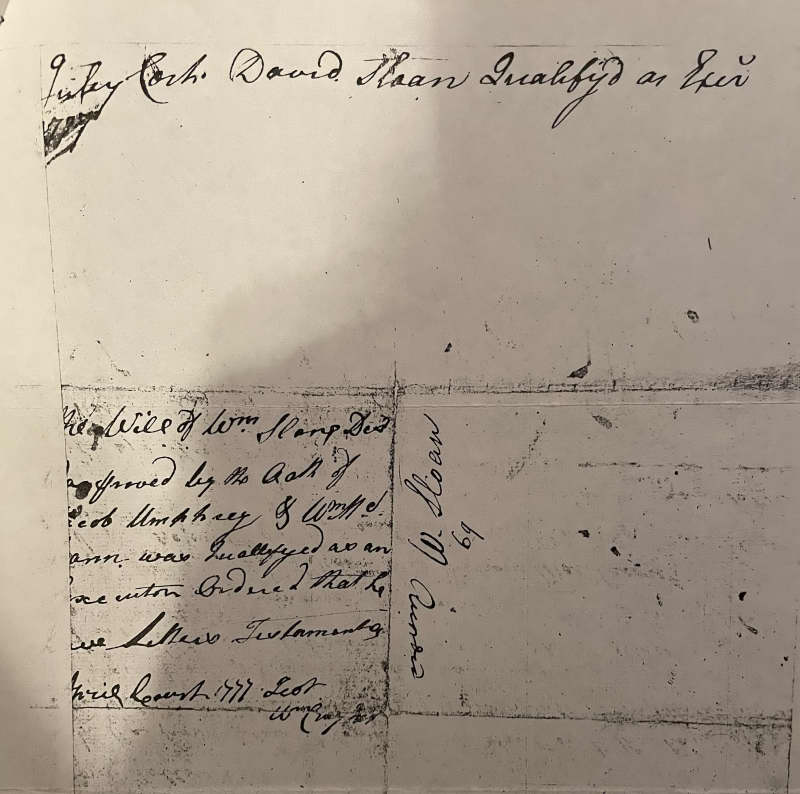 July Cort. David Sloan Qualifyd as Exer
1777
he Will of Wm Sloan Decd
proved by the Oath of
cob Umphrey & Wm
ann was Quallifyed as an
xecutor Ordered that he
ave Letters Testamentary
pril Court 1777 Test
Wm
W. Sloan
69